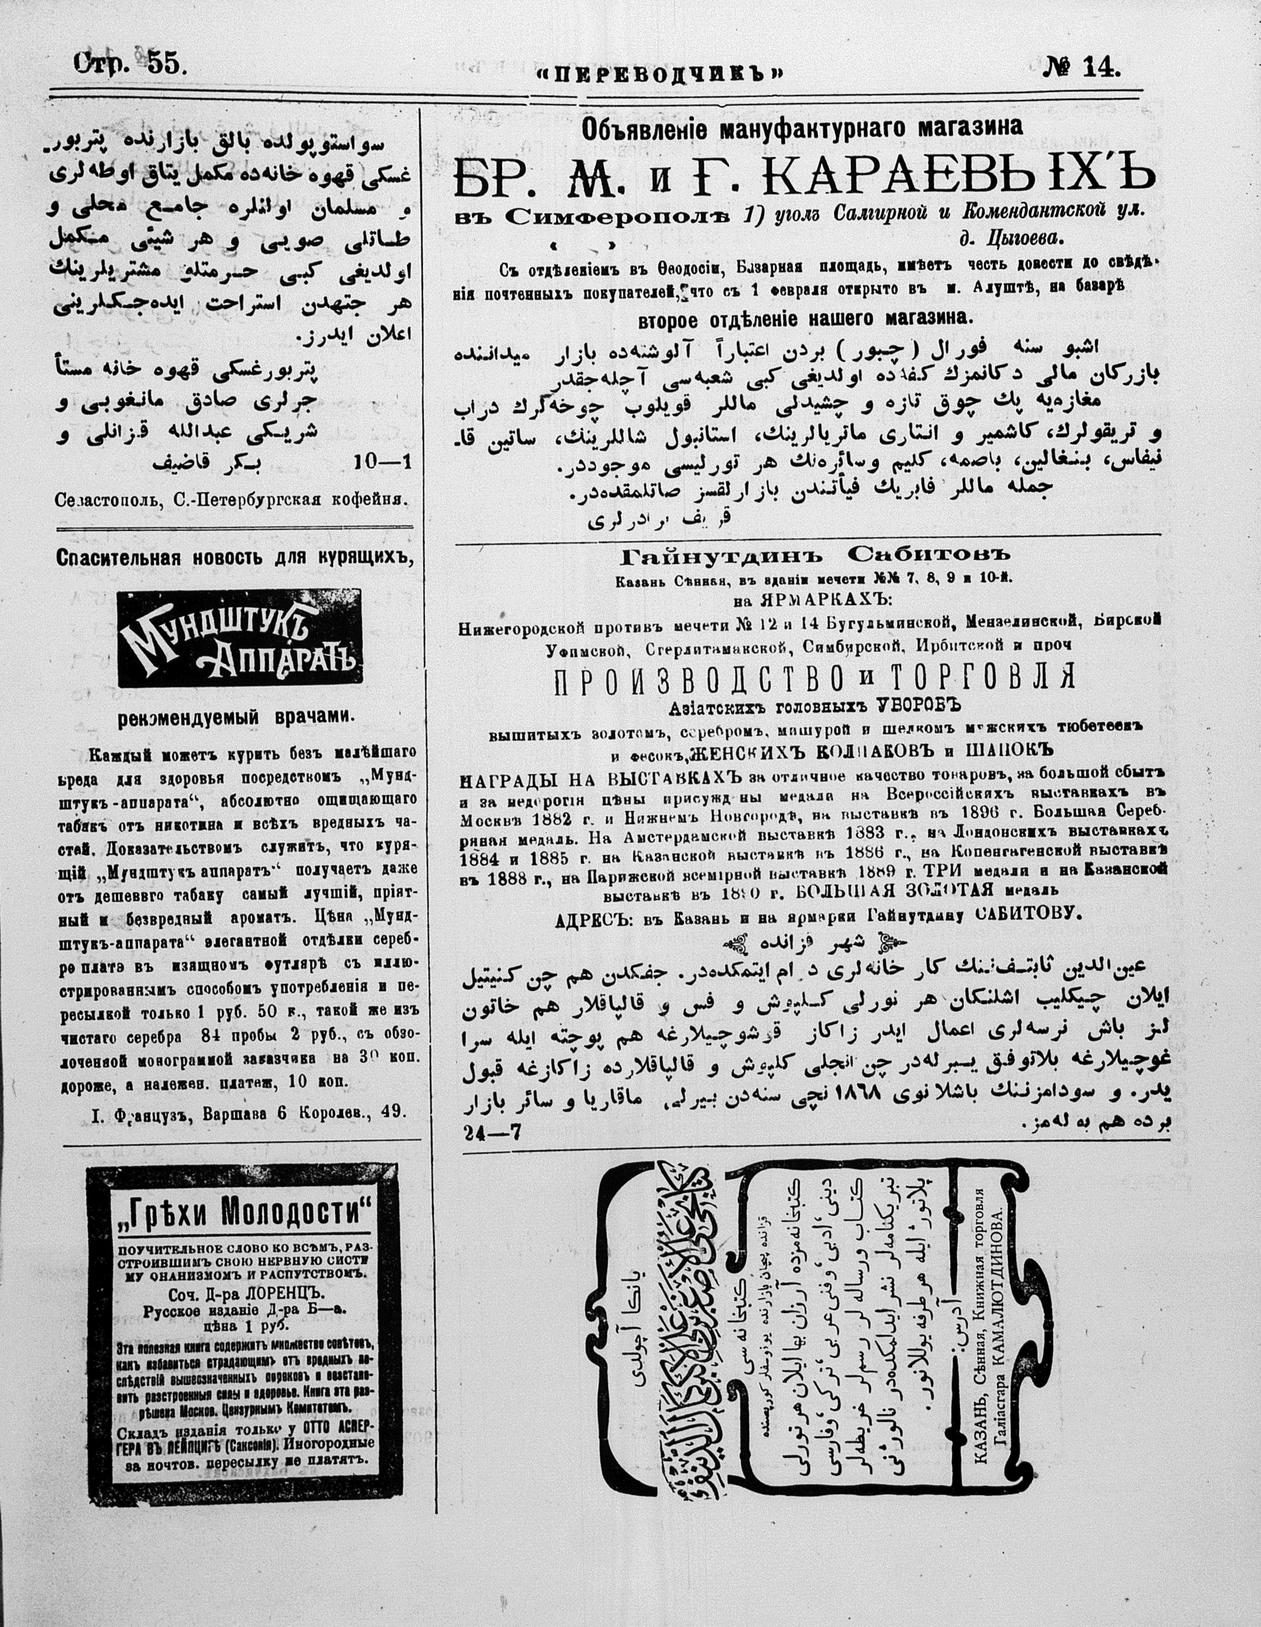 Стр. 55.
"ПЕРЕВОДЧИКЪ"
№ 14.
سواستوپولده بالق بازارنده پتربور
غسكی قهوه خانه‌ده مكمل یتاق اوطه‌لری
و مسلمان اولنلره جامع محلی و
طاتلی صویی و هر شیئی مكمل
اولدیغی كبی حرمتلو مشتریلرینك
هر جتهدن استراحت ایده‌جكلرینی
اعلان ایدرز.
پتربورغسكی قهوه خانه مستأ
جرلری صادق مانغوبی و
شریكی عبدالله قزانلی و
بكر قاضیف 10—1
Севастополь, С.-Петербургская кофейня.
Спасительная новость для курящихъ,
МУНДШТУКЪ
АППАРАТЪ
рекомендуемый врачами.
Каждый можетъ курить безъ малѣйшаго
вреда для здоровья посредствомъ „Мунд-
штукъ-аппарата“, абсолютно ощищающаго
табакъ отъ никотина и всѣхъ вредныхъ ча-
стей. Доказательствомъ служитъ, что куря-
щій „Мундштукъ аппаратъ“ получаетъ даже
отъ дешеваго табаку самый лучшій, прiят-
ный и безвредный ароматъ. Цѣна „Мунд-
штукъ-аппарата“ элегантной отдѣлки сереб-
ре платэ въ изящномъ футлярѣ съ иллю-
стрированнымъ способомъ употребленія и пе-
ресылкой только 1 руб. 50 к., такой же изъ
чистаго серебра 84 пробы 2 руб., съ обзо-
лоченной монограммой заказчика на 30 коп.
дороже, а наложен. платеж, 10 коп.
І. Французъ, Варшава 6 Королев., 49.
„Грѣхи Молодости“
ПОУЧИТЕЛЬНОЕ СЛОВО КО ВСѢМЪ, РАЗ-
СТРОИВШИМЪ СВОЮ НЕРВНУЮ СИСТЕ
МУ ОНАНИЗМОМЪ И РАСПУТСТВОМЪ.
Соч. Д-ра ЛОРЕНЦЪ.
Русское изданіе Д-ра Б—а.
цѣна 1 руб.
Эта полезная книга содержитъ множество совѣтовъ,
какъ избавиться страдающимъ отъ вредныхъ по-
слѣдствій вышеозначенныхъ пороковъ и возстано-
вить разстроенныя силы и здоровье. Книга эта раз-
рѣшена Москов. Цензурнымъ Комитетомъ.
Складъ изданія только у ОТТО АСПЕР-
ГЕРА ВЪ ЛЕЙПЦИГѢ (Саксонія). Иногородные
за почтов. пересылку не платятъ.
Объявленіе мануфактурнаго магазина
БР. М. и Г. КАРАЕВЫХЪ
въ Симферополѣ 1) уголъ Салгирной и Комендантской ул.
д. Цыгоева.
Съ отдѣленіемъ въ Ѳеодосіи, Базарная площадь, имѣетъ честь довести до свѣдѣ-
нія почтенныхъ покупателей, что съ 1 февраля открыто въ м. Алуштѣ, на базарѣ
второе отдѣленіе нашего магазина.
اشبو سنه فورال (چبور) بردن اعتباراً آلوشته‌ده بازار میداننده
بازركان مالی دكانمزك كفه‌ده اولدیغی كبی شعبه‌سی آچله‌جقدر
مغازه‌یه پك چوق تازه و چشیدلی ماللر قویلوب چوخه‌لرك دراب
و تریقولرك، كاشمیر و انتاری ماتریالرینك، استانبول شاللرینك، ساتین قا-
نیفاس، بنغالین، باصمه، كلیم وسائره‌نك هر تورلیسی موجوددر.
جمله ماللر فابریك فیأتندن بازارلقسز صاتلمقده‌در.
برادرلری
Гайнутдинъ Сабитовъ
Казань Сѣнная, въ зданіи мечети №№ 7, 8, 9 и 10-й.
на ЯРМАРКАХЪ:
Нижегородской противъ мечети № 12 и 14 Бугульминской, Мензелинской, Бирской
Уфимской, Стерлитамакской, Симбирской, Ирбитской и проч
ПРОИЗВОДСТВО и ТОРГОВЛЯ
Азіатскихъ головныхъ УБОРОВЪ
вышитыхъ золотомъ, серебромъ, мишурой и шелкомъ мужскихъ тюбетеекъ
и фесокъ, ЖЕНСКИХЪ КОЛПАКОВЪ и ШАПОКЪ
НАГРАДЫ НА ВЫСТАВКАХЪ за отличное качество товаровъ, за большой сбытъ
и за недорогія цѣны присуждены медали на Всероссійскихъ выставкахъ въ
Москвѣ 1882 г. и Нижнемъ Новгородѣ, на выставкѣ въ 1896 г. Большая Сереб-
ряная медаль. На Амстердамской выставкѣ 1883 г., на Лондонскихъ выставкахъ
1884 и 1885 г. на Казанской выставкѣ въ 1886 г., на Копенгагенской выставкѣ
въ 1888 г., на Парижской всемірной выставкѣ 1889 г. ТРИ медали и на Казанской
выставкѣ въ 1890 г. БОЛЬШАЯ ЗОЛОТАЯ медаль
АДРЕСЪ: въ Казань и на ярмарки Гайнутдину САБИТОВУ.
شهر قزانده
عین‌الدین ثابتف‌ننك كار خانه‌لری دوام ایتمكده‌در. جفكدن هم چن كنیتیل
ایلان چیكلیب اشلنكان هر نورلی كلپوش و فس و قالپاقلار هم خاتون
لنز باش نرسه‌لری اعمال ایدر زاكاز قوشوچیلارغه هم پوچته ایله سرا
غوچیلارغه بلاتوفق یبرله‌در چن انجلی كلپوش و قالپاقلارده زاكازغه قبول
یدر. و سودامزننك باشلانوی ١٨٦٨ نچی سنه‌دن بیرلی، ماقاریا و سائر بازار
برده هم به له‌مز.
24—7
یانكا آچولدی
كتبخانه سی
قزانده پچان بازارنده یوزوسفلر كورپصنده
كتبخانه‌مزده آرزان بها ایلان هر نورلی
دینی، ادبی، وفنی عربی، تركی، وفارسی
كتاب ورساله لر رسم لر خریطه‌لر
نبریكنامه‌لر نشر ایدلمكده‌در نالورنی
پلاتوژ ایله هر طرفه یوللانور.
آدرس:
КАЗАНЬ, Сѣнная, Книжная торговля
Галіасгара КАМАЛЮТДИНОВА.